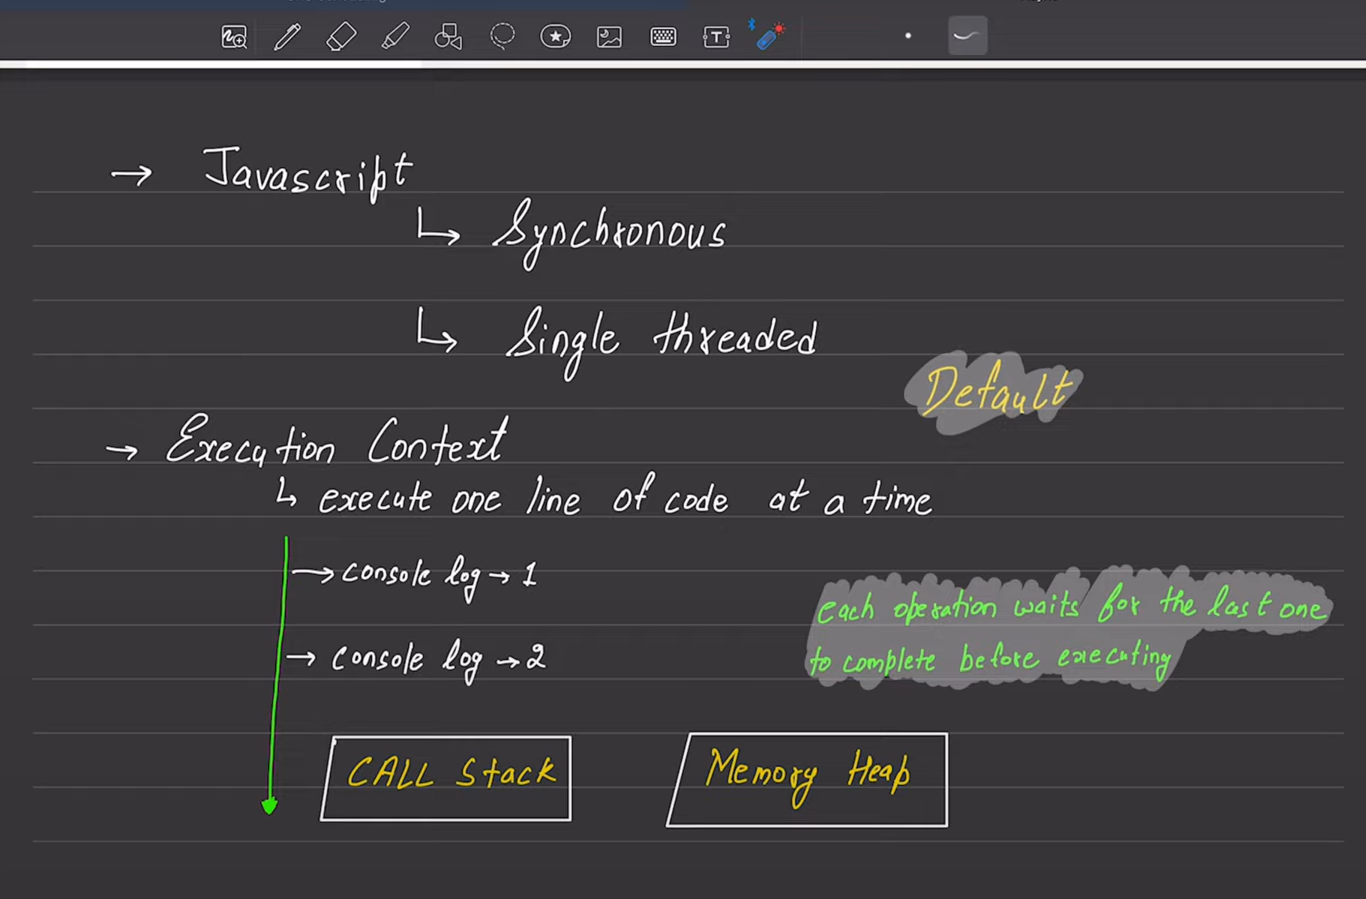 → Javascript
↳ Synchronous
↳ Single threaded
Default
→ Execution Context
↳ execute one line of code at a time
→ console log → 1
each operation waits for the last one
to complete before executing
→ console log → 2
CALL Stack
Memory Heap